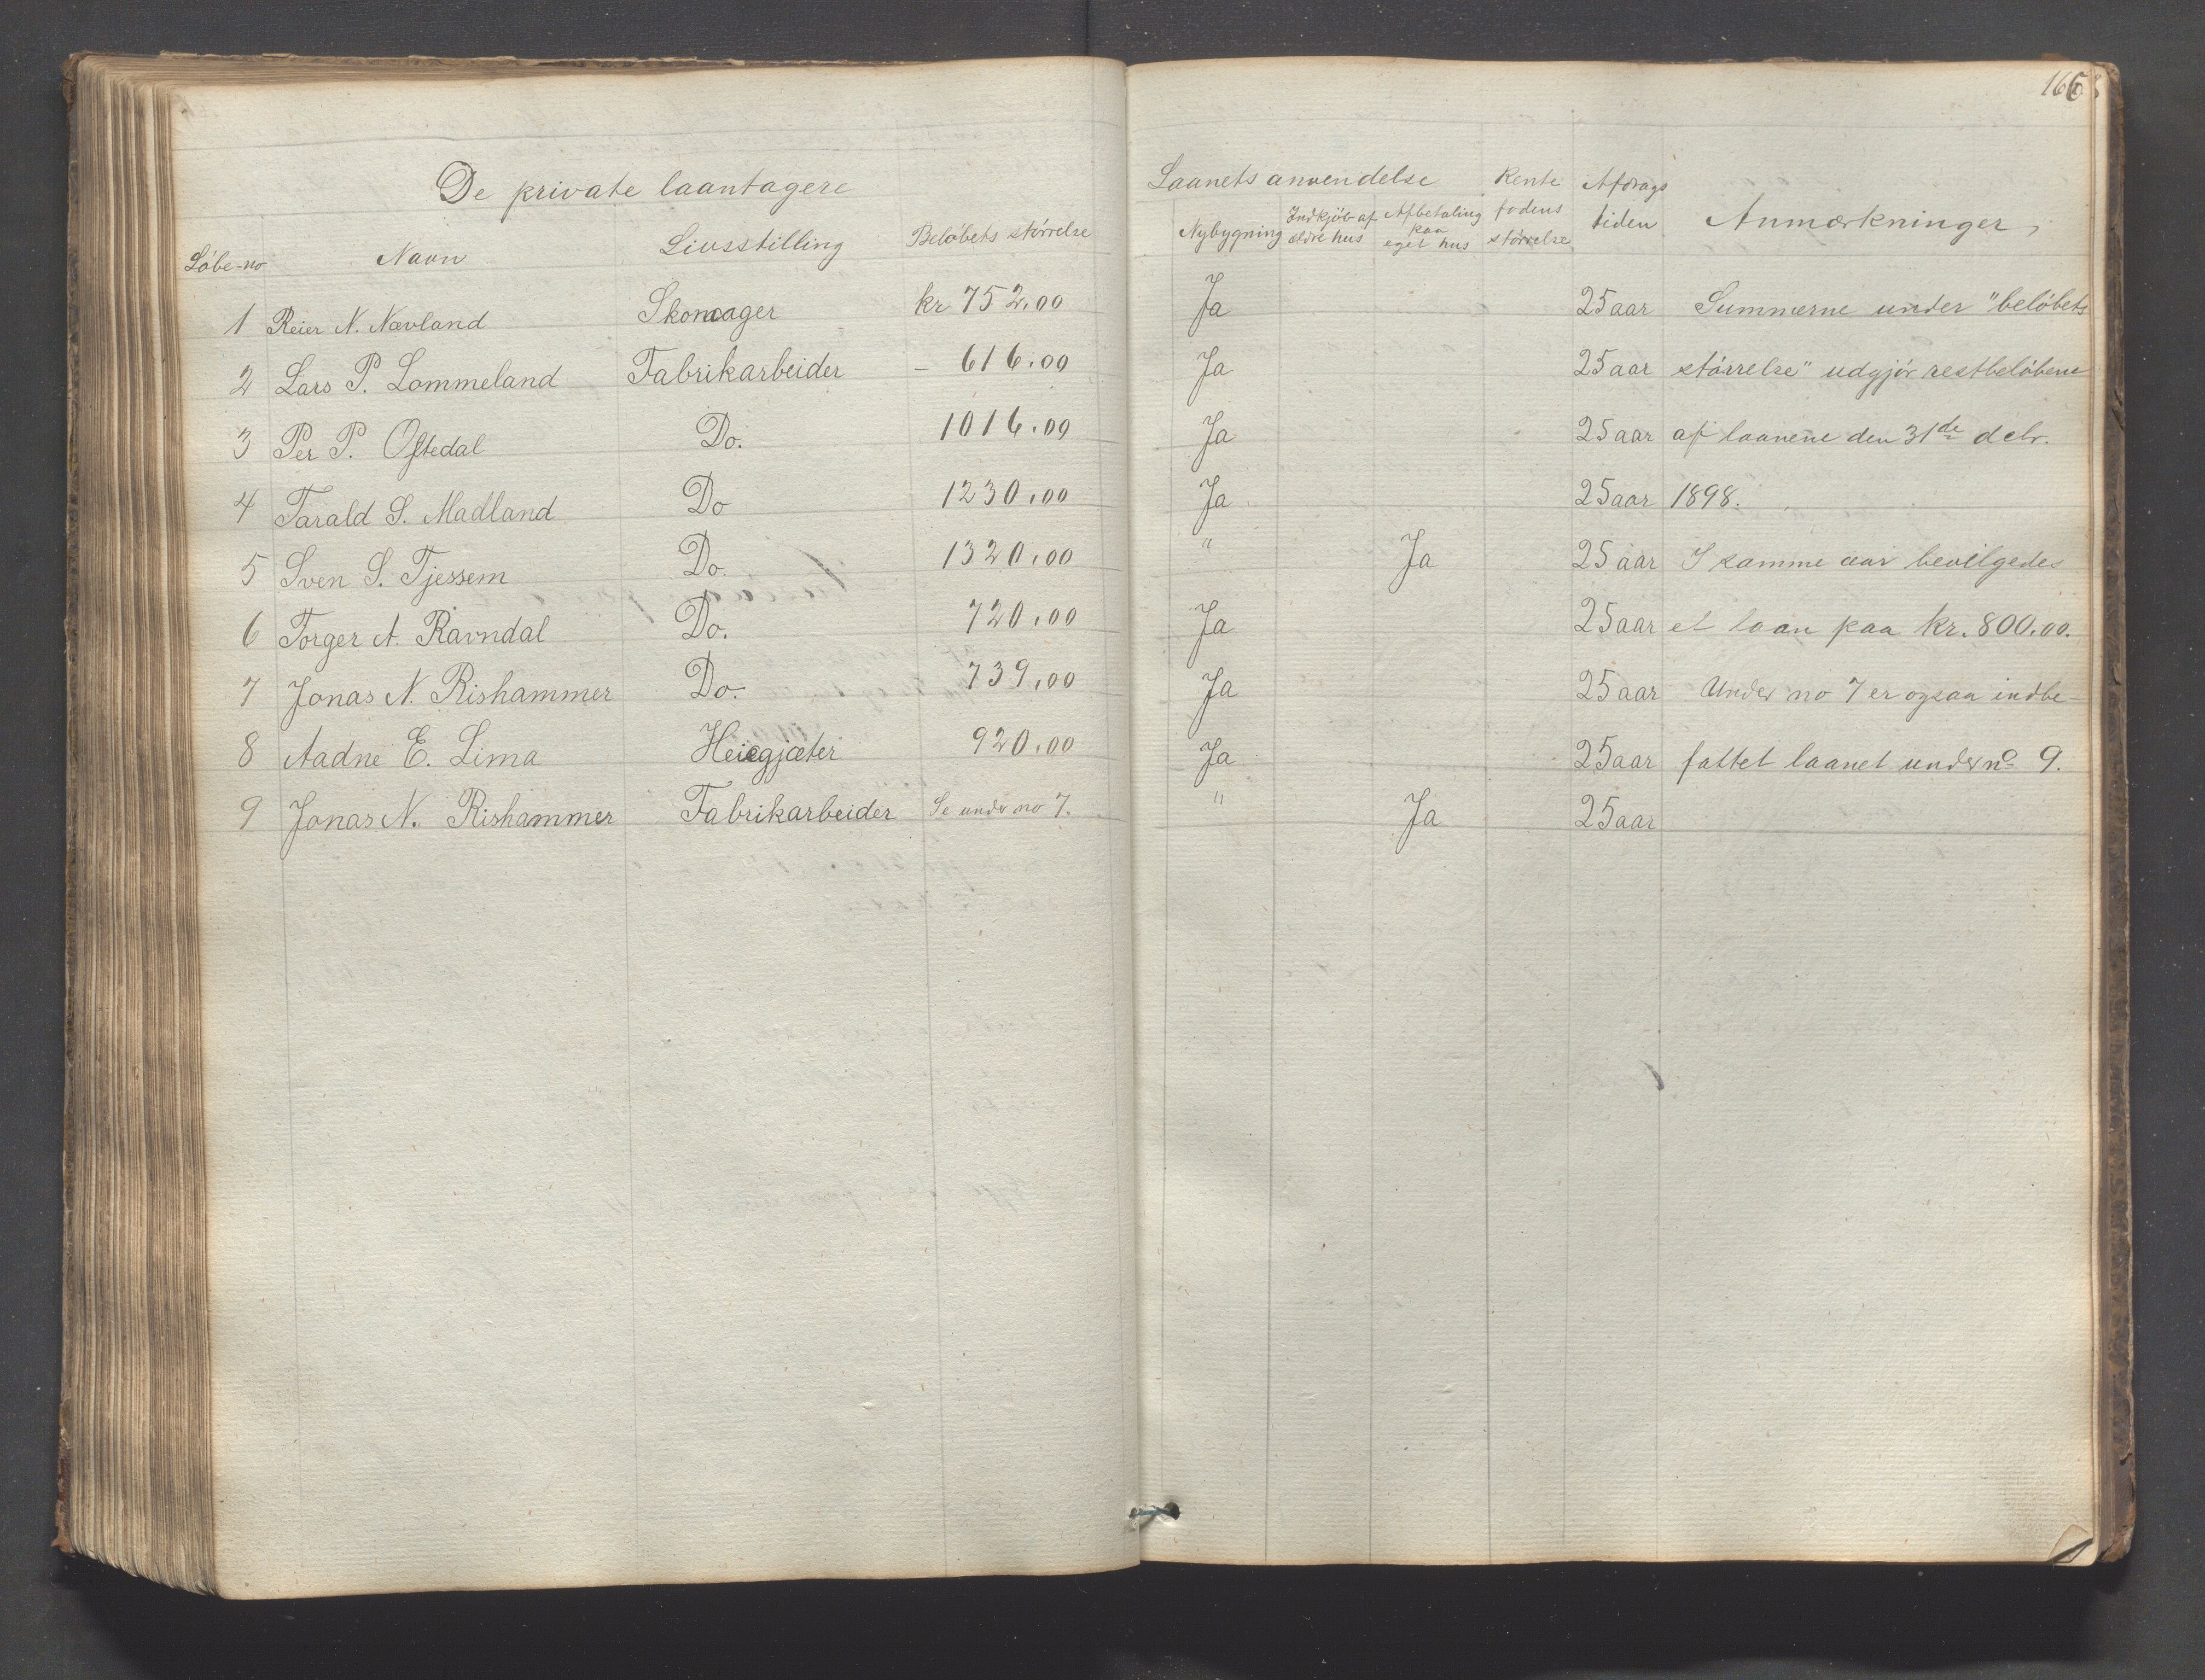 166
De private laantagere
Løbe-no Navn Livsstilling Beløbets størrelse
Laanets anvendelse
Nybygning Indkjøb af ældre hus Afbetaling paa eget hus
Rente fodens størrelse
Afdrags tiden
Anmærkninger
1 Reier N. Nævland Skomager kr 752,00 Ja 25 aar Summerne under "beløbets
2 Lars P. Lommeland Fabrikarbeider – 616,00 Ja 25 aar størrelse" udgjør restbeløbene
3 Per P. Oftedal Do. 1016,00 Ja 25 aar af laanene den 31de dcbr.
4 Tarald S. Madland Do 1230,00 Ja 25 aar 1898.
5 Sven S. Tjessem Do. 1320,00 " Ja 25 aar I samme aar bevilgedes
6 Torger A. Ravndal Do. 720,00 Ja 25 aar et laan paa kr. 800,00.
7 Jonas N. Rishammer Do. 739,00 Ja 25 aar Under no 7 er ogsaa indbe-
8 Aadne E. Lima Heiegjæter 920,00 Ja 25 aar fattet laanet under no 9.
9 Jonas N. Rishammer Fabrikarbeider Se under no 7. " Ja 25 aar